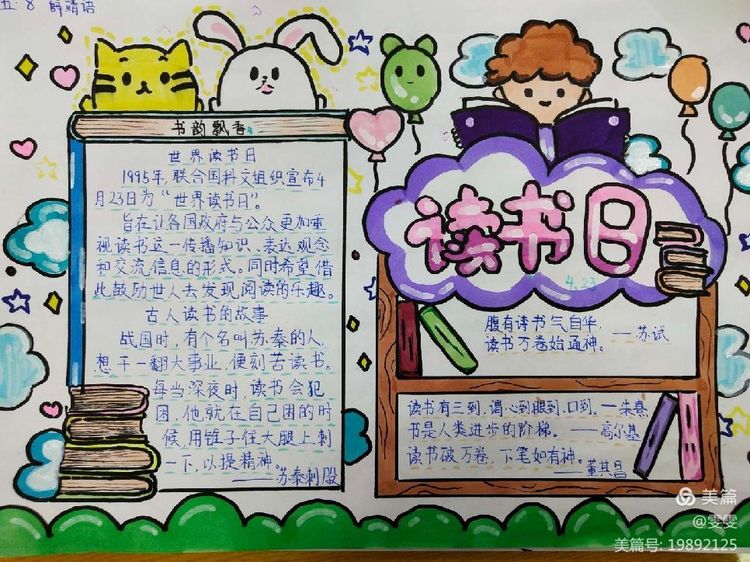 五.8 薛晴语
书韵飘香
世界读书日
1995年,联合国科文组织宣布4
月23日为“世界读书日”。
旨在让各国政府与公众更加重
视读书这一传播知识、表达观念
和交流信息的形式。同时希望借
此鼓励世人去发现阅读的乐趣。
古人读书的故事
战国时,有个名叫苏秦的人,
想干一翻大事业,便刻苦读书。
每当深夜时,读书会犯
困,他就在自己困的时
候,用锥子往大腿上刺
一下,以提精神。
——苏秦刺股
读书日
4.23
腹有诗书气自华,
读书万卷始通神。——苏试
读书有三到,谓心到眼到、口到,—朱熹
书是人类进步的阶梯。——高尔基
读书破万卷,下笔如有神。——董其昌
美篇
@雯雯
美篇号: 19892125